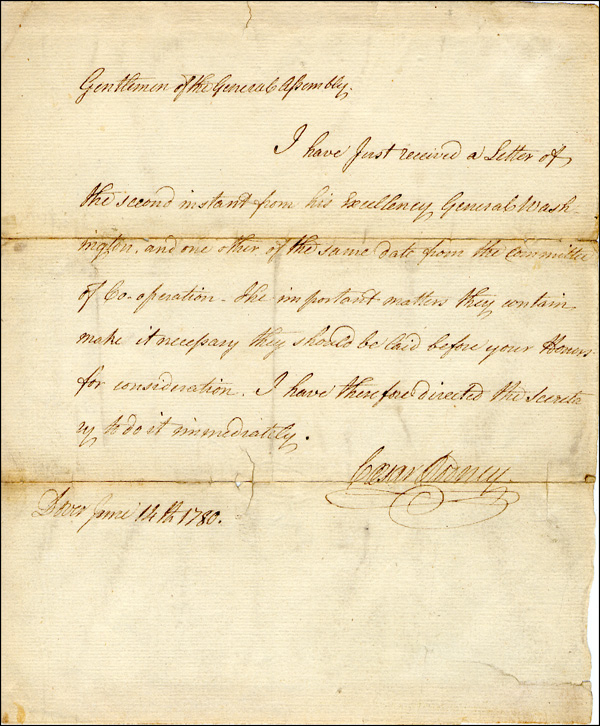 Gentlemen of the General Assembly.
I have Just received a Letter of
the second instant from his Excellency General Wash-
ington, and one other of the same date from the Committee
of Co-operation - The important matters they contain
make it necessary they should be laid before your Honors
for consideration. I have therefore directed the Secreta
ry to do it immediately.
Cæsar Rodney
Dover June 14th 1780.